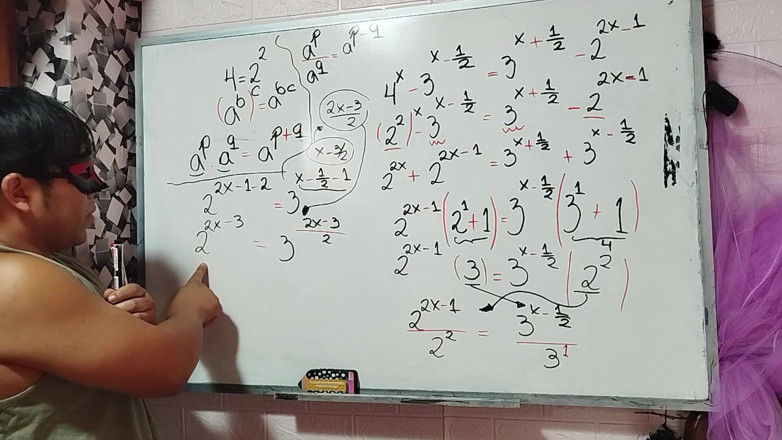 4=2²
(a^b)^c=a^bc
a^p·a^q=a^p+q
a^p/a^q=a^p-q
2x-3/2
x-3/2
2^2x-1-2 = 3^x-1/2-1
2^2x-3 = 3^2x-3/2
4^x-3^x-1/2=3^x+1/2-2^2x-1
(2²)^x-3^x-1/2=3^x+1/2-2^2x-1
2^2x+2^2x-1=3^x+1/2+3^x-1/2
2^2x-1(2¹+1)=3^x-1/2(3¹+1)
4
2^2x-1(3)=3^x-1/2(2²)
2^2x-1/2²=3^x-1/2/3¹